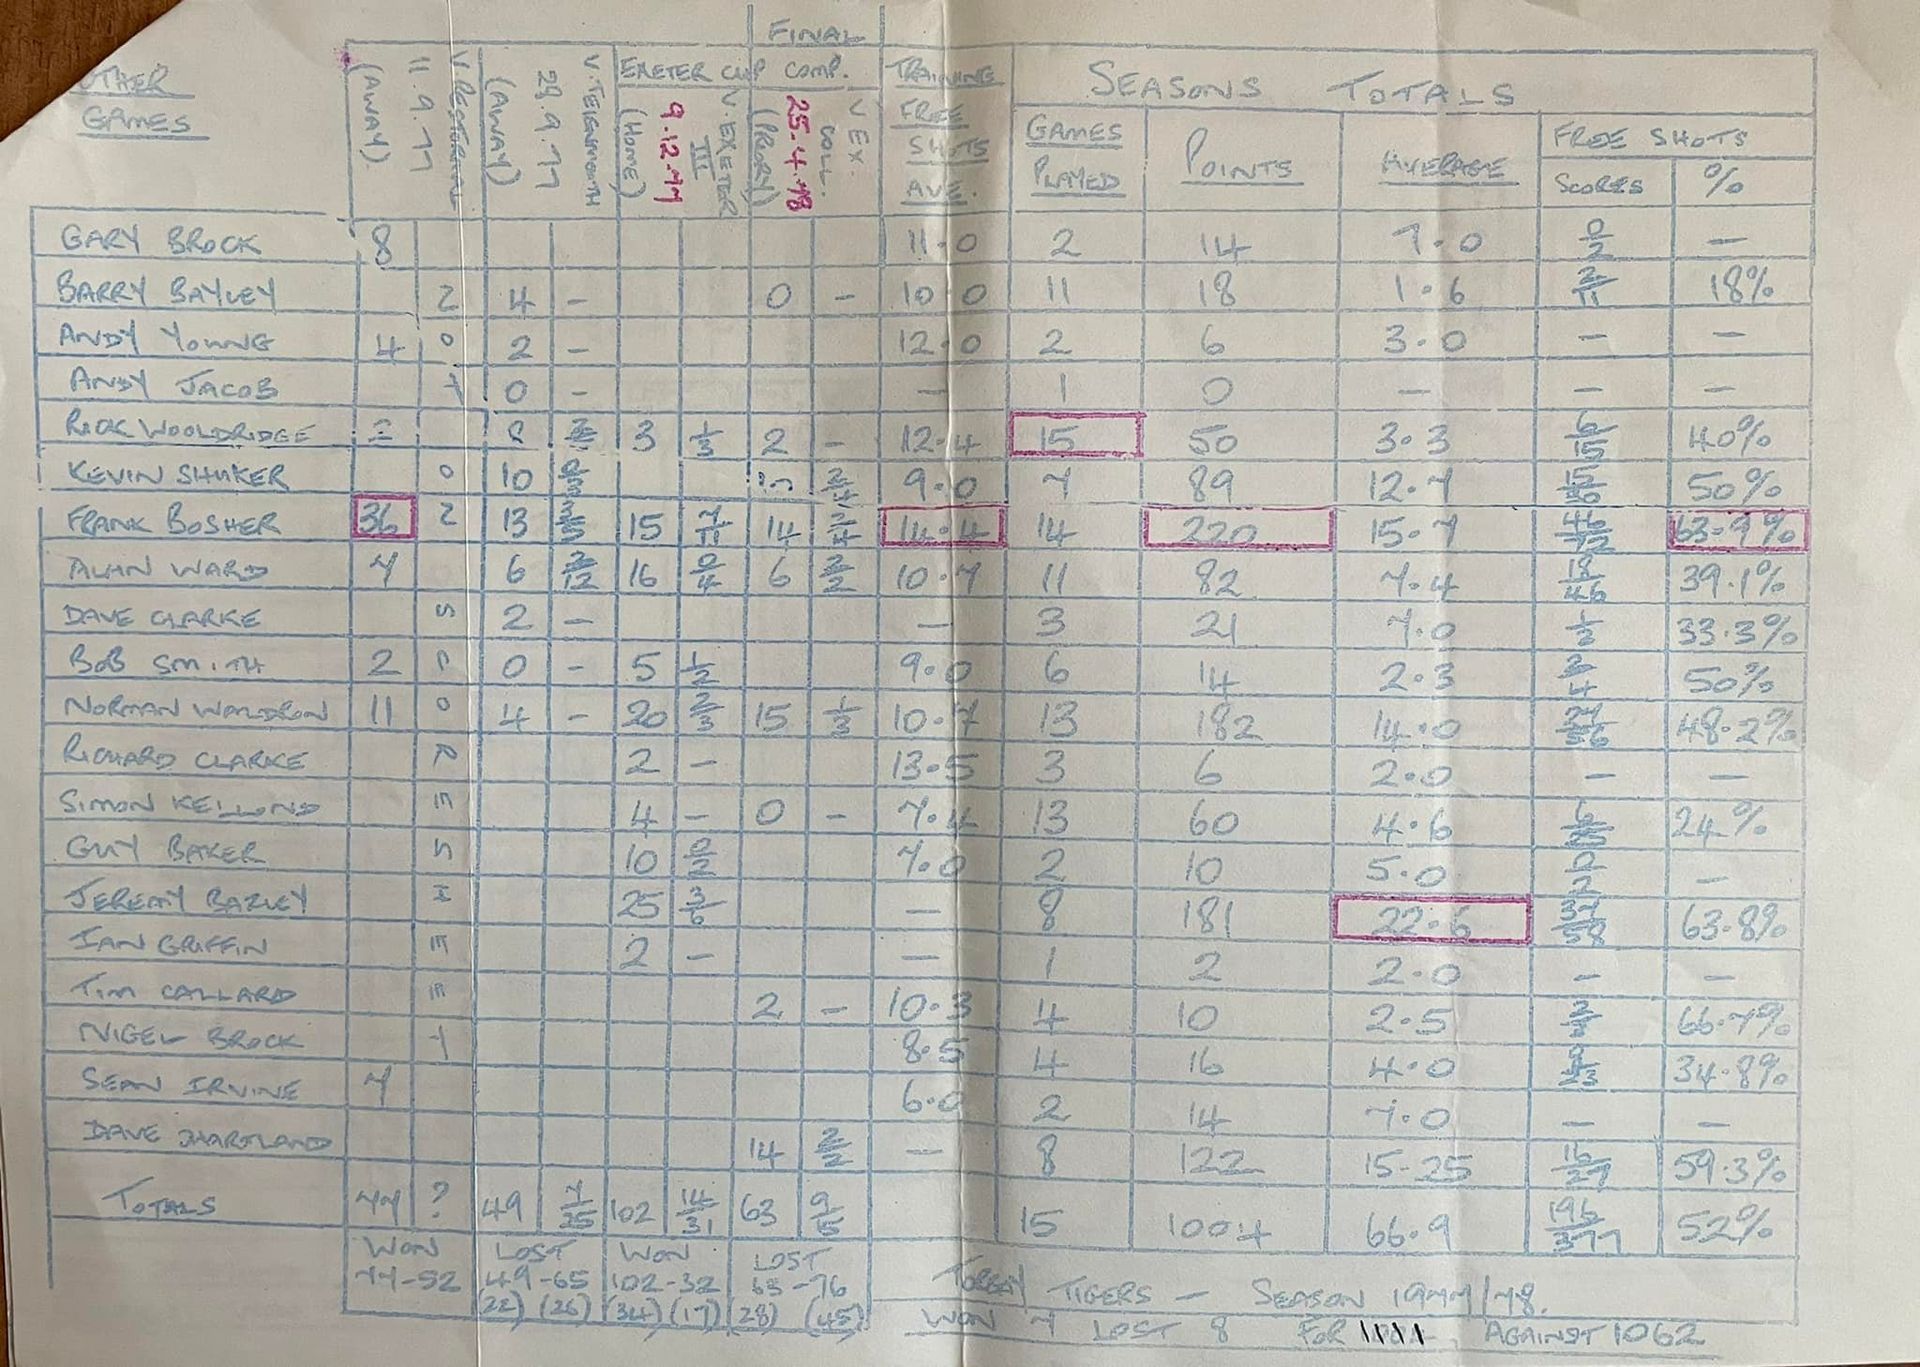 OTHER GAMES
(AWAY) 11.9.77 V.
(AWAY) 29.9.77 V. TEIGNMOUTH
EXETER CUP COMP. FINAL
(HOME) 9.12.77 V. EXETER III
25.4.78 V EX. COLL.
TRAINING FREE SHOTS AVE.
SEASONS TOTALS
GAMES PLAYED POINTS AVERAGE FREE SHOTS
SCORES %
NO RECORD FREE SHOTS
GARY BROCK 8 11.0 2 14 7.0 0/2 —
BARRY BAYLEY 4 – 0 – 10.0 11 18 1.6 2/11 18%
ANDY YOUNG 4 2 – 12.0 2 6 3.0 — —
ANDY JACOB 0 – — 1 0 — — —
RICK WOOLDRIDGE 3 1/3 2 – 12.4 15 50 3.3 6/15 40%
KEVIN SHAKER 10 9.0 7 89 12.7 50%
FRANK BOSHER 36 13 3/5 15 7/11 14 14.4 14 220 15.7 46/72 63.9%
ALAN WARD 7 6 2/12 16 0/4 6 2/2 10.7 11 82 7.4 18/46 39.1%
DAVE CLARKE 2 – — 3 21 7.0 1/3 33.3%
BOB SMITH 2 0 – 5 1/2 9.0 6 14 2.3 2/4 50%
NORMAN WALDRON 11 4 – 20 2/3 15 1/3 10.7 13 182 14.0 27/56 48.2%
RICHARD CLARKE 2 – 13.5 3 6 2.0 — —
SIMON KELLOND 4 – 0 – 7.4 13 60 4.6 24%
GUY BAKER 10 0/2 7.0 2 10 5.0 0/2 —
JEREMY BAZLEY 25 3/6 — 8 181 22.6 37/58 63.8%
IAN GRIFFIN 2 – — 1 2 2.0 — —
TIM CALLARD 2 – 10.3 4 10 2.5 2/3 66.7%
NIGEL BROCK 8.5 4 16 4.0 34.8%
SEAN IRVINE 7 6.0 2 14 7.0 — —
DAVE SHARTLAND 14 2/2 — 8 122 15.25 16/27 59.3%
TOTALS 77 ? 49 7/25 102 14/31 63 9/15 15 1004 66.9 196/377 52%
WON 77-52
LOST 49-65 (22) (26)
WON 102-32 (34) (17)
LOST 63-76 (28) (45)
TORBAY TIGERS – SEASON 1977/78.
WON 7 LOST 8 FOR AGAINST 1062